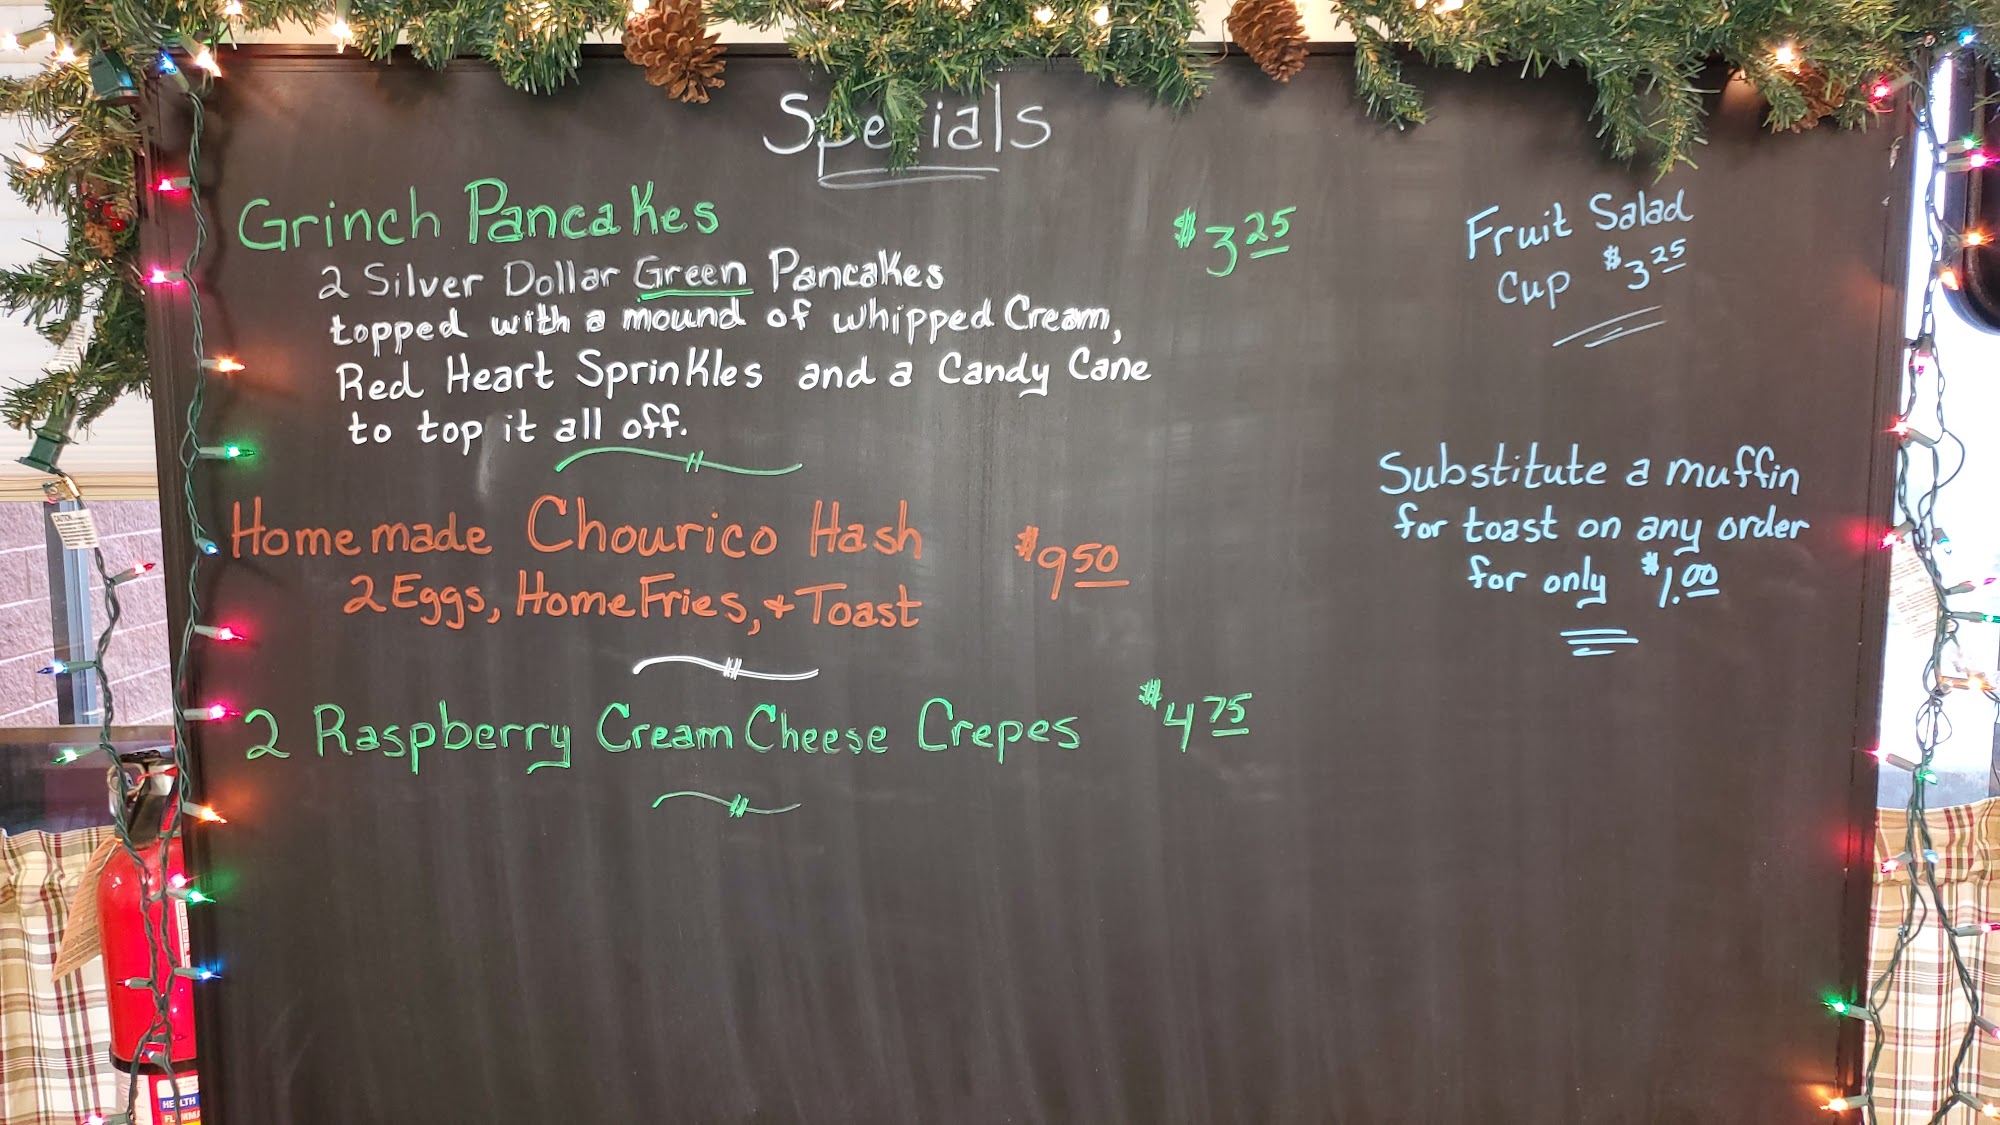 Specials
Grinch Pancakes $3.25
2 Silver Dollar Green Pancakes
topped with a mound of whipped Cream,
Red Heart Sprinkles and a Candy Cane
to top it all off.
Homemade Chourico Hash $9.50
2 Eggs, Home Fries, + Toast
2 Raspberry Cream Cheese Crepes $4.75
Fruit Salad
Cup $3.25
Substitute a muffin
for toast on any order
for only $1.00
CAUTION
HEALTH